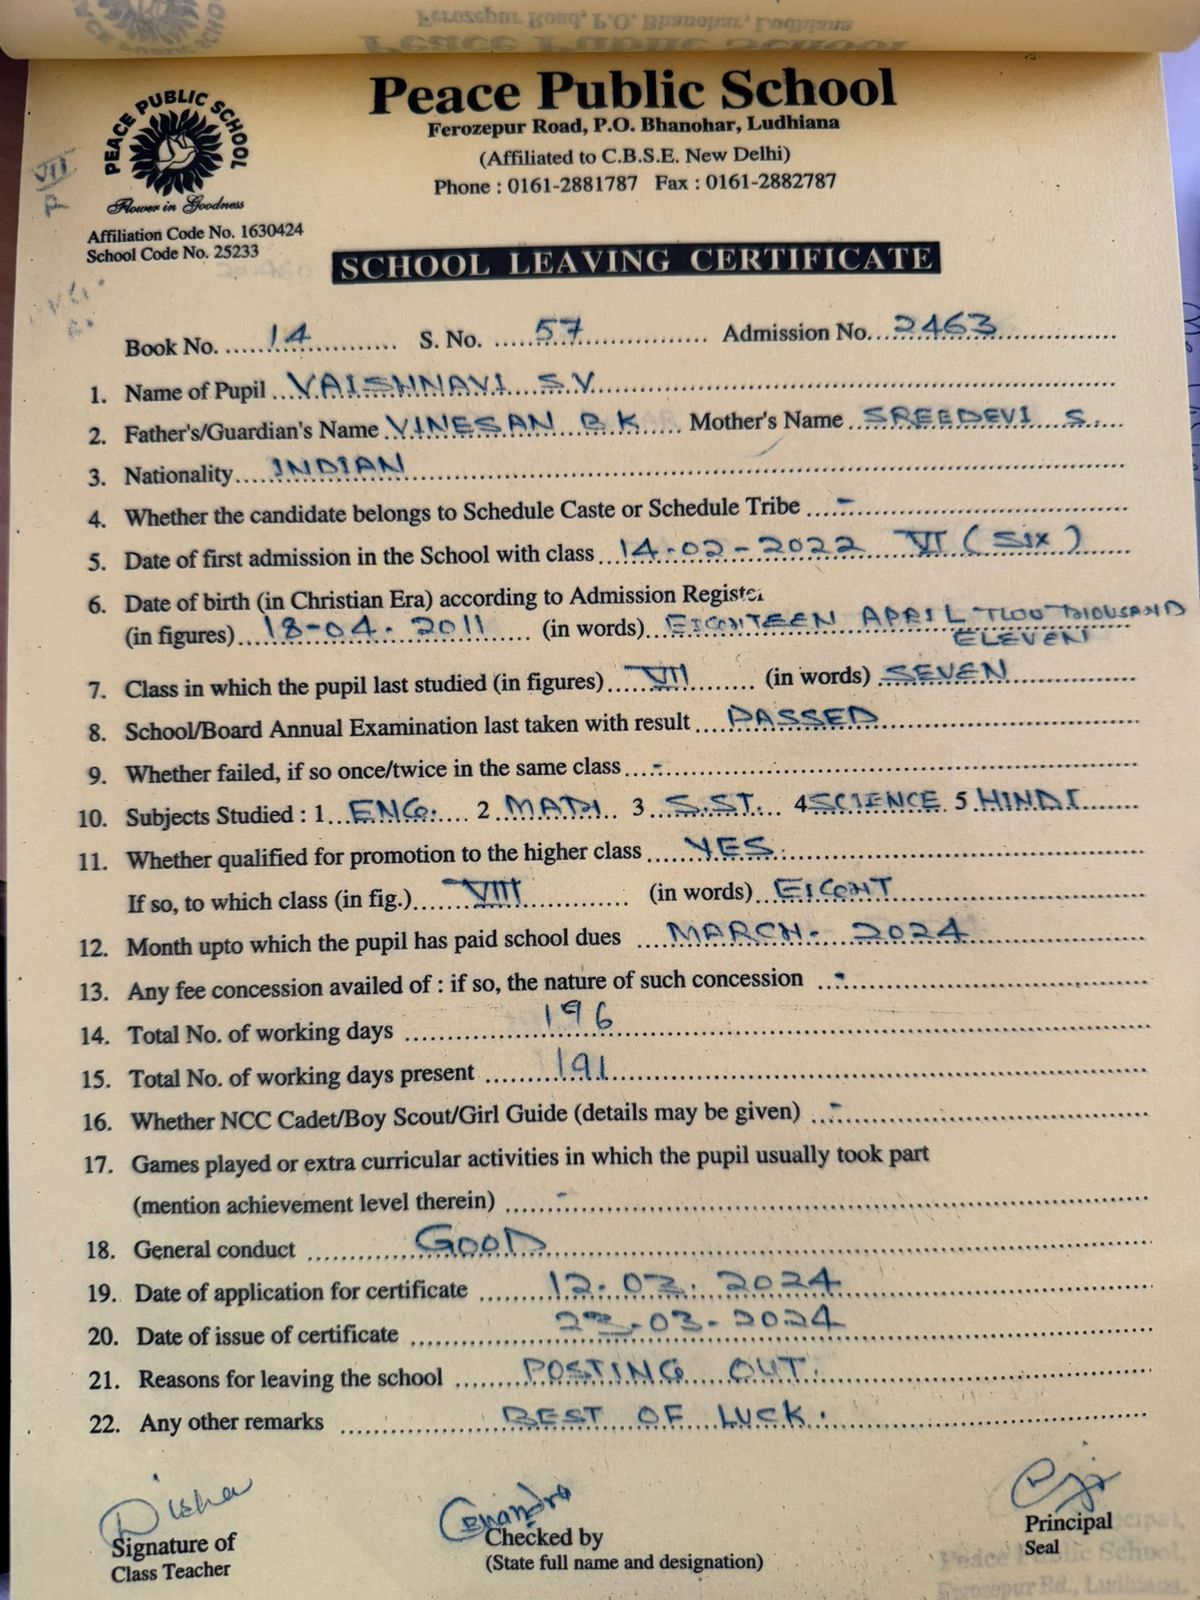 Peace Public School
Ferozepur Road, P.O. Bhanohar, Ludhiana
(Affiliated to C.B.S.E. New Delhi)
Phone : 0161-2881787 Fax : 0161-2882787
PEACE PUBLIC SCHOOL
Flower in Goodness
Affiliation Code No. 1630424
School Code No. 25233
VII
SCHOOL LEAVING CERTIFICATE
Book No. 14 S. No. 57 Admission No. 2463
1. Name of Pupil VAISHNAVI S.V.
2. Father's/Guardian's Name VINESAN B K Mother's Name SREEDEVI S.
3. Nationality INDIAN
4. Whether the candidate belongs to Schedule Caste or Schedule Tribe -
5. Date of first admission in the School with class 14-02-2022 VI (SIX)
6. Date of birth (in Christian Era) according to Admission Register
(in figures) 18-04-2011 (in words) EIGHTEEN APRIL TWO THOUSAND
ELEVEN
7. Class in which the pupil last studied (in figures) VII (in words) SEVEN
8. School/Board Annual Examination last taken with result PASSED
9. Whether failed, if so once/twice in the same class -
10. Subjects Studied : 1 ENG. 2 MATH 3 S.ST. 4 SCIENCE 5 HINDI
11. Whether qualified for promotion to the higher class YES
If so, to which class (in fig.) VIII (in words) EIGHT
12. Month upto which the pupil has paid school dues MARCH- 2024
13. Any fee concession availed of : if so, the nature of such concession -
14. Total No. of working days 196
15. Total No. of working days present 191
16. Whether NCC Cadet/Boy Scout/Girl Guide (details may be given) -
17. Games played or extra curricular activities in which the pupil usually took part
(mention achievement level therein) -
18. General conduct GOOD
19. Date of application for certificate 12.03.2024
20. Date of issue of certificate 23-03-2024
21. Reasons for leaving the school POSTING OUT.
22. Any other remarks BEST OF LUCK.
Disha
Signature of
Class Teacher
Chandra
Checked by
(State full name and designation)
Principal
Seal
Principal,
Peace Public School,
Ferozepur Rd., Ludhiana.